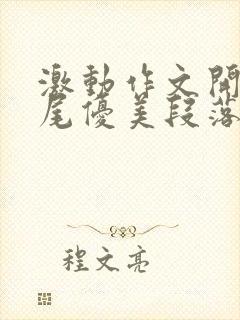 激動作文開
尾優美段落
程文亮